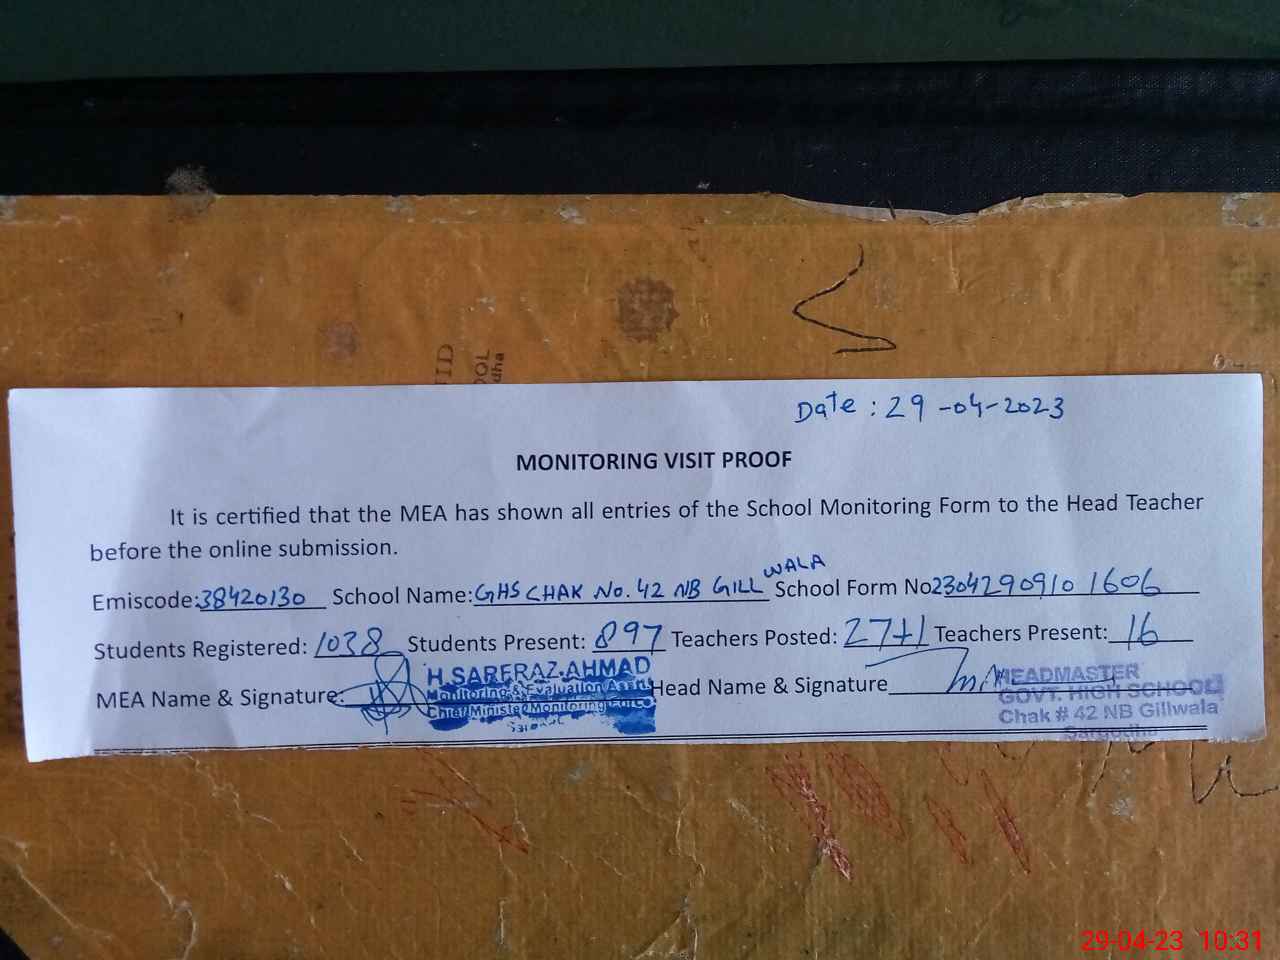 IID
OOL
dha
Date : 29-04-2023
MONITORING VISIT PROOF
It is certified that the MEA has shown all entries of the School Monitoring Form to the Head Teacher
before the online submission.
Emiscode: 38420130 School Name: GHS CHAK No. 42 NB GILL WALA School Form No 23042909101606
Students Registered: 1038 Students Present: 897 Teachers Posted: 27+1 Teachers Present: 16
MEA Name & Signature: Head Name & Signature
H.SARFRAZ AHMAD
Monitoring & Evaluation Assis
Chief Minister Monitoring Force
HEADMASTER
GOVT. HIGH SCHOOL
Chak # 42 NB Gillwala
Sargodha
29-04-23 10:31